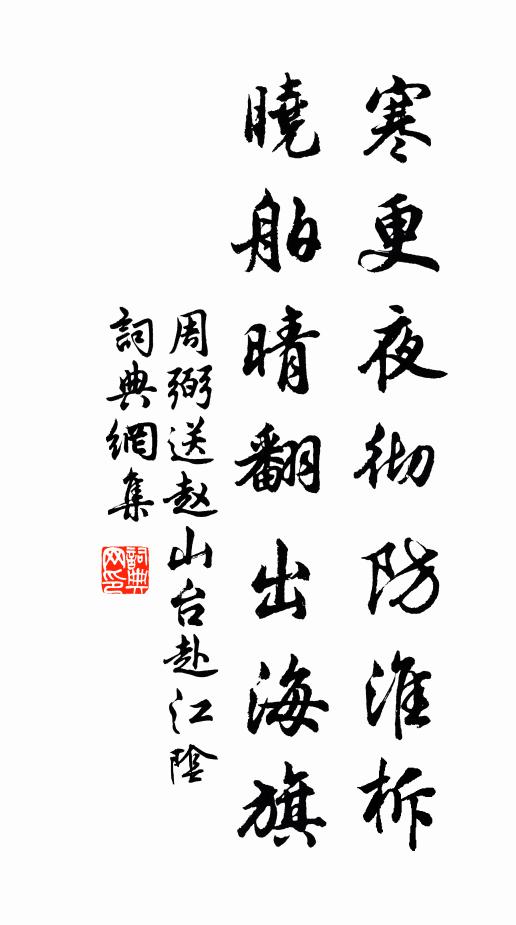 寒更夜彻防淮柝
曉舶晴翻出海旗
周弼送赵山台赴江陰
詞典網集
詞典网印